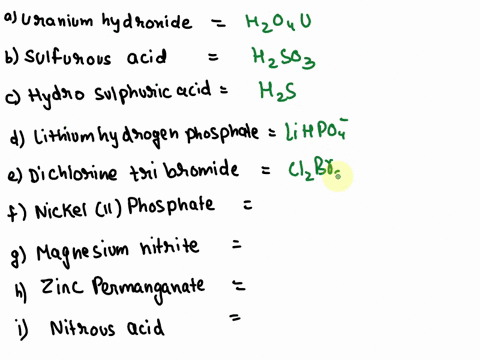 a) Uranium hydroxide = H₂O₄U
b) Sulfurous acid = H₂SO₃
c) Hydro sulphuric acid = H₂S
d) Lithium hydrogen phosphate = LiHPO₄⁻
e) Dichlorine tri bromide = Cl₂Br
f) Nickel (II) Phosphate =
g) Magnesium nitrite =
h) Zinc Permanganate =
i) Nitrous acid =